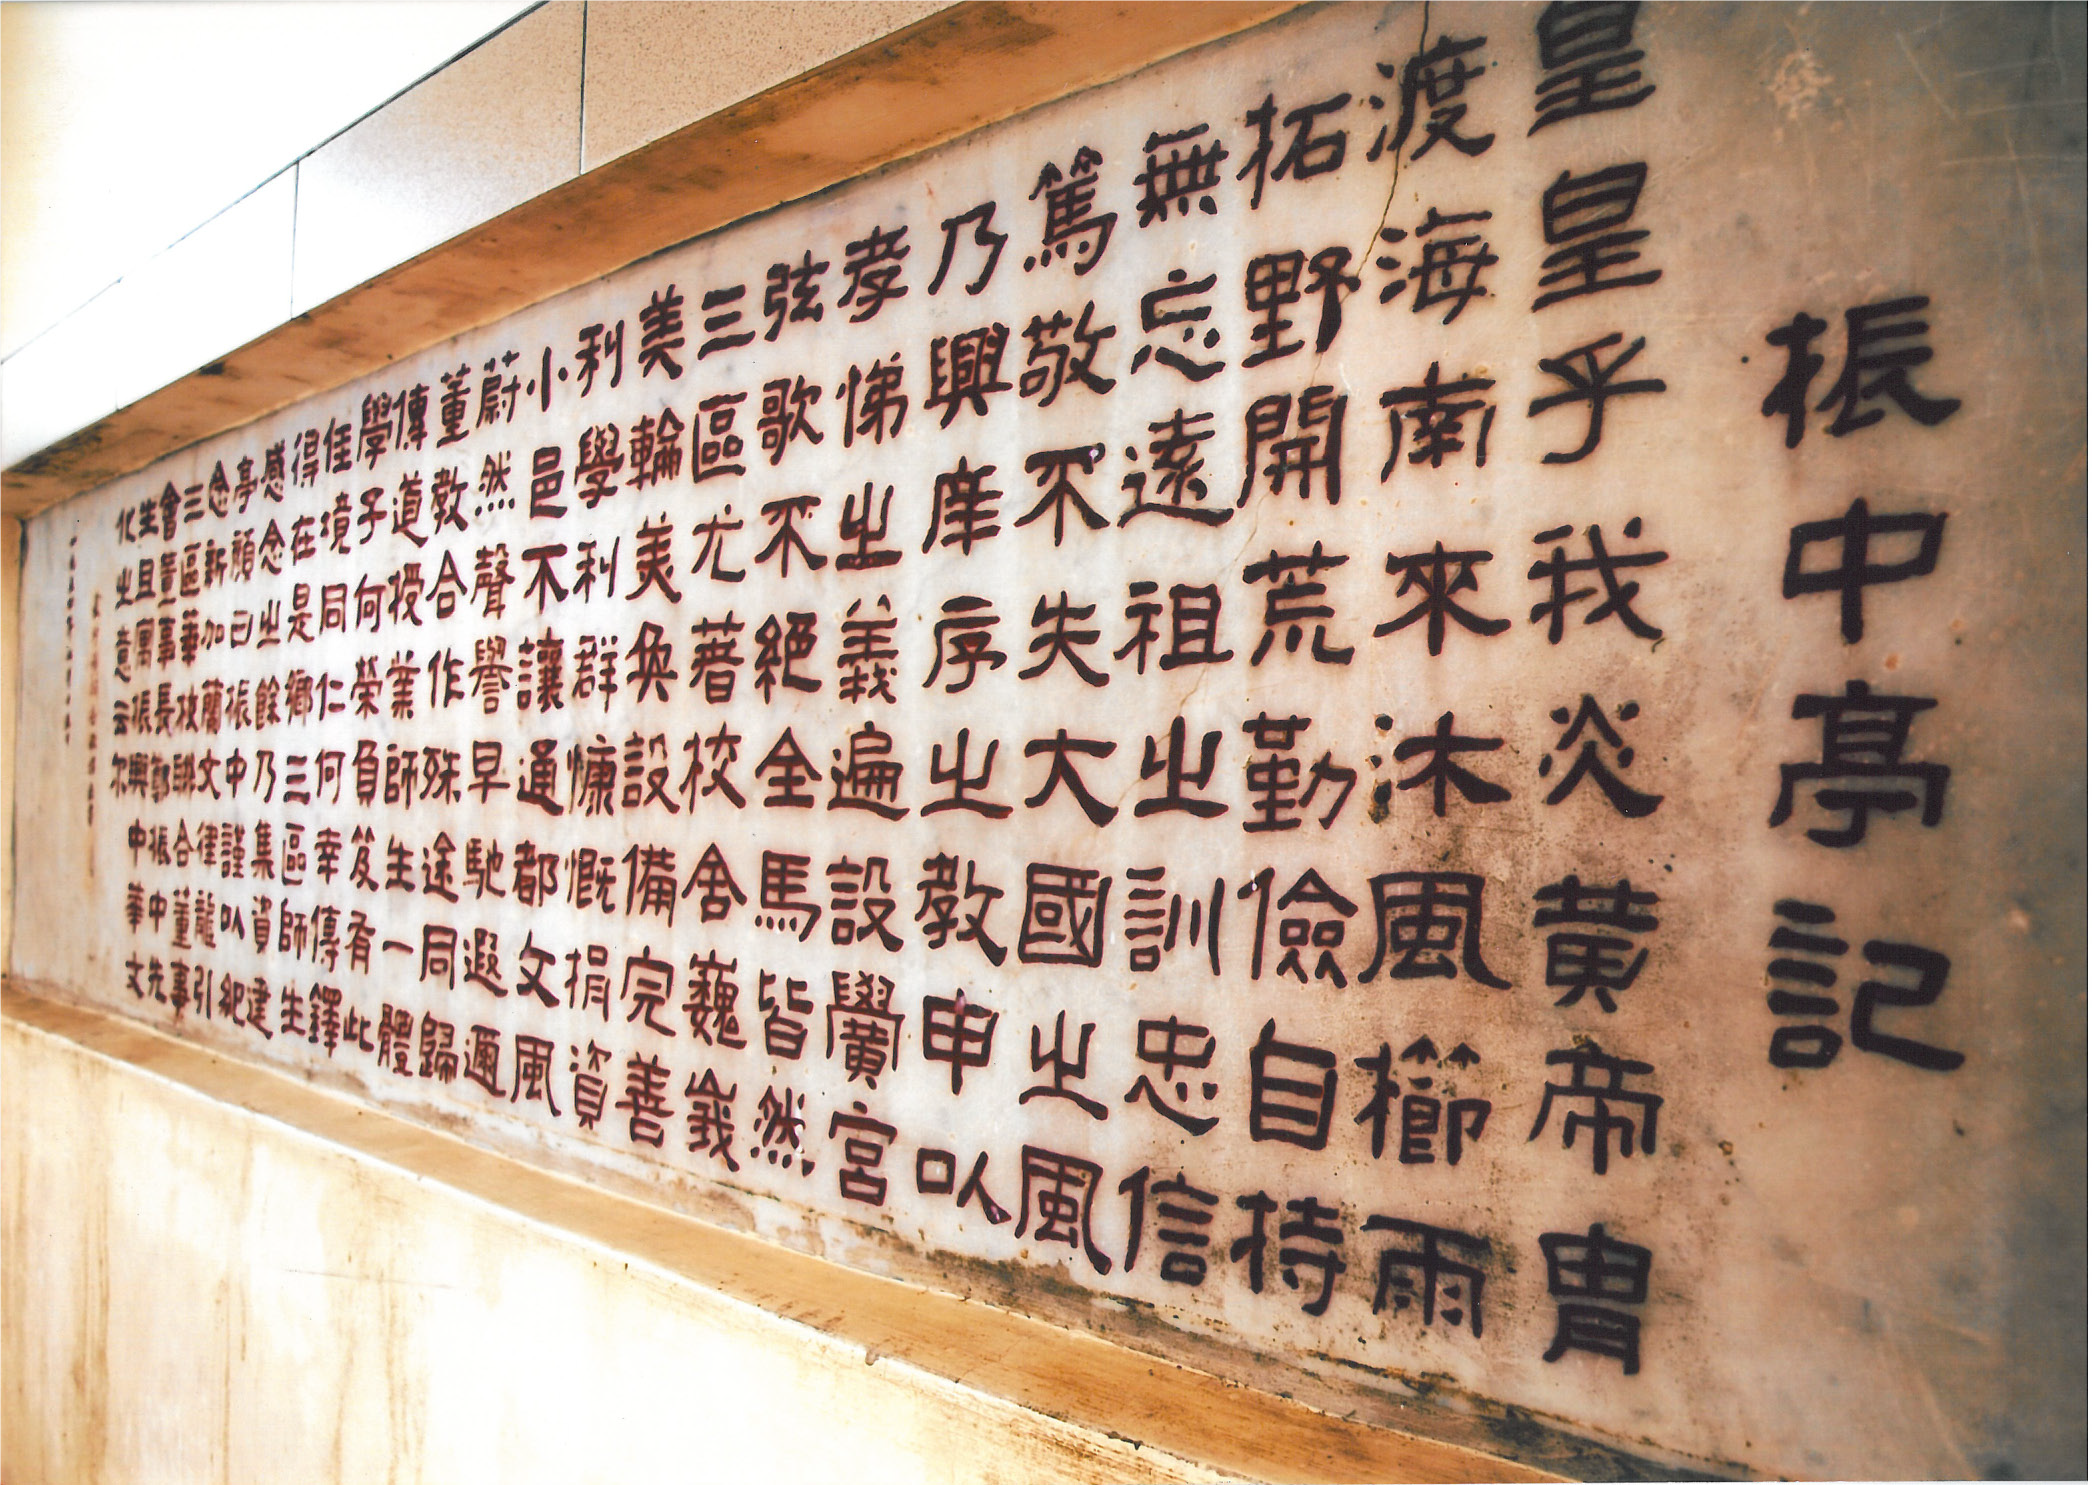 振中亭記
皇皇乎我炎黃帝冑
渡海南來沐風櫛雨
拓野開荒勤儉自持
無忘遠祖之訓忠信
篤敬不失大國之風
乃興庠序之教申以
孝悌之義遍設黌宮
弦歌不絕全馬皆然
三區尤著校舍巍峩
美輪美奐設備完善
利學利群慷慨捐資
小邑不讓通都文風
蔚然聲譽早馳遐邇
董教合作殊途同歸
傳道授業師生一體
學子何榮負笈有此
佳境同仁何幸傳鐸
得在是鄉三區師生
感念之餘乃集資建
亭顏曰振中謹以紀
念新加蘭文律龍引
三區華校聯合董事
會董事長鄭振中先
生且寓振興中華文
化之意云尔